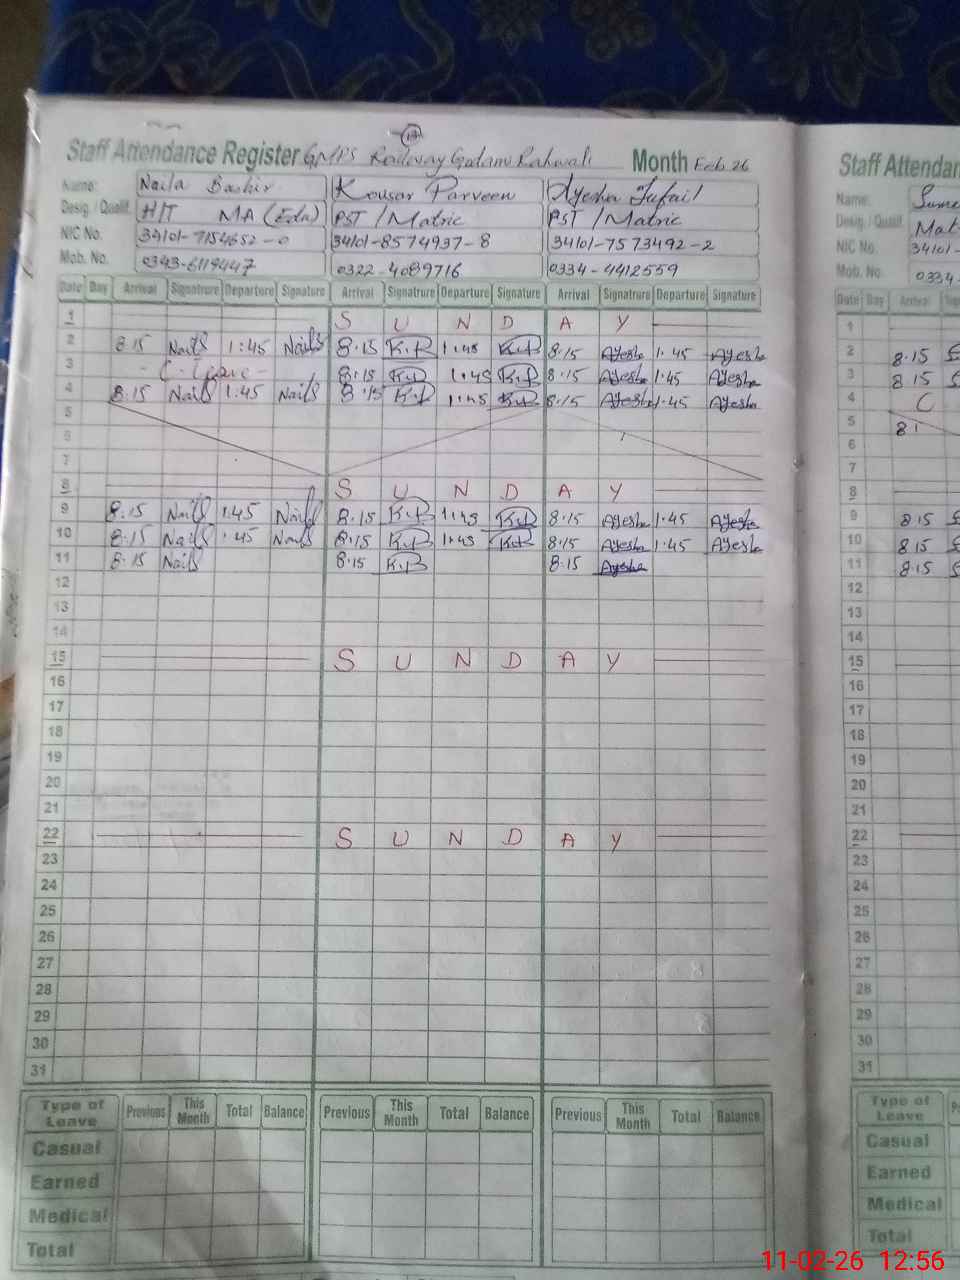 14
Staff Attendance Register GMPS Railway Godam Rahwali Month Feb 26
Name: Naila Bashir Kousar Parveen Ayesha Tufail
Desig. / Qualif. H/T MA (Edu) PST / Matric PST / Matric
NIC No. 34101-7154652-0 34101-8574937-8 34101-7573492-2
Mob. No. 0343-6119447 0322-4089716 0334-4412559
Date Day Arrival Signatrure Departure Signature Arrival Signatrure Departure Signature Arrival Signatrure Departure Signature
1 S U N D A Y
2 8:15 Naila 1:45 Naila 8:15 K.P 1:45 K.P 8:15 Ayesha 1:45 Ayesha
3 - C-Leave - 8:15 K.P 1:45 K.P 8:15 Ayesha 1:45 Ayesha
4 8:15 Naila 1:45 Naila 8:15 K.P 1:45 K.P 8:15 Ayesha 1:45 Ayesha
5
6
7
8 S U N D A Y
9 8:15 Naila 1:45 Naila 8:15 K.P 1:45 K.P 8:15 Ayesha 1:45 Ayesha
10 8:15 Naila 1:45 Naila 8:15 K.P 1:45 K.P 8:15 Ayesha 1:45 Ayesha
11 8:15 Naila 8:15 K.P 8:15 Ayesha
12
13
14
15 S U N D A Y
16
17
18
19
20
21
22 S U N D A Y
23
24
25
26
27
28
29
30
31
Type of Leave Previous This Month Total Balance Previous This Month Total Balance Previous This Month Total Balance
Casual
Earned
Medical
Total
Staff Attendan
Name: Sume
Desig. / Qualif. Mat
NIC No. 34101-
Mob. No. 0334
Date Day Arrival
1
2 8:15
3 8:15
4 C
5 8:1
6
7
8
9 8:15
10 8:15
11 8:15
12
13
14
15
16
17
18
19
20
21
22
23
24
25
26
27
28
29
30
31
Type of Leave
Casual
Earned
Medical
Total
11-02-26 12:56